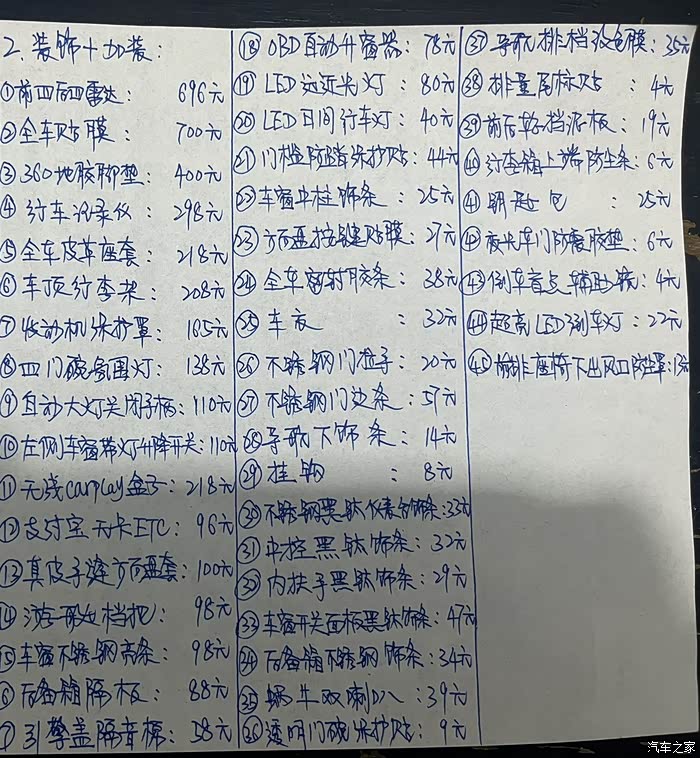 2. 装饰+加装:
①前四后四雷达: 696元
②全车贴膜: 700元
③360地胶脚垫: 400元
④行车记录仪: 298元
⑤全车皮革座套: 218元
⑥车顶行李架: 208元
⑦发动机保护罩: 165元
⑧四门碗氛围灯: 138元
⑨自动大灯关闭手柄: 110元
⑩左侧车窗带灯升降开关: 110元
⑪无线carplay盒子: 218元
⑫支付宝无卡ETC: 96元
⑬真皮手缝方向盘套: 100元
⑭档把: 98元
⑮车窗不锈钢亮条: 98元
⑯后备箱隔板: 88元
⑰引擎盖隔音棉: 58元
⑱OBD自动升窗器: 78元
⑲LED远近光灯: 80元
⑳LED日间行车灯: 40元
㉑门槛防踩保护贴: 44元
㉒车窗中柱饰条: 25元
㉓方向盘按键贴膜: 27元
㉔全车密封胶条: 38元
㉕车衣: 32元
㉖不锈钢门拉手: 20元
㉗不锈钢门边条: 57元
㉘导航下饰条: 14元
㉙挂钩: 8元
㉚不锈钢黑钛仪表台饰条: 23元
㉛中控黑钛饰条: 32元
㉜内扶手黑钛饰条: 29元
㉝车窗开关面板黑钛饰条: 47元
㉞后备箱不锈钢饰条: 34元
㉟蜗牛双喇叭: 39元
㊱透明门碗保护贴: 9元
㊲导航排档改色膜: 35元
㊳排量尾标贴: 4元
㊴前后轮挡泥板: 19元
㊵行李箱上端防尘条: 6元
㊶钥匙包: 25元
㊷夜光车门防震胶垫: 6元
㊸倒车盲点辅助镜: 4元
㊹超亮LED倒车灯: 22元
㊺前排座椅下出风口防尘罩: